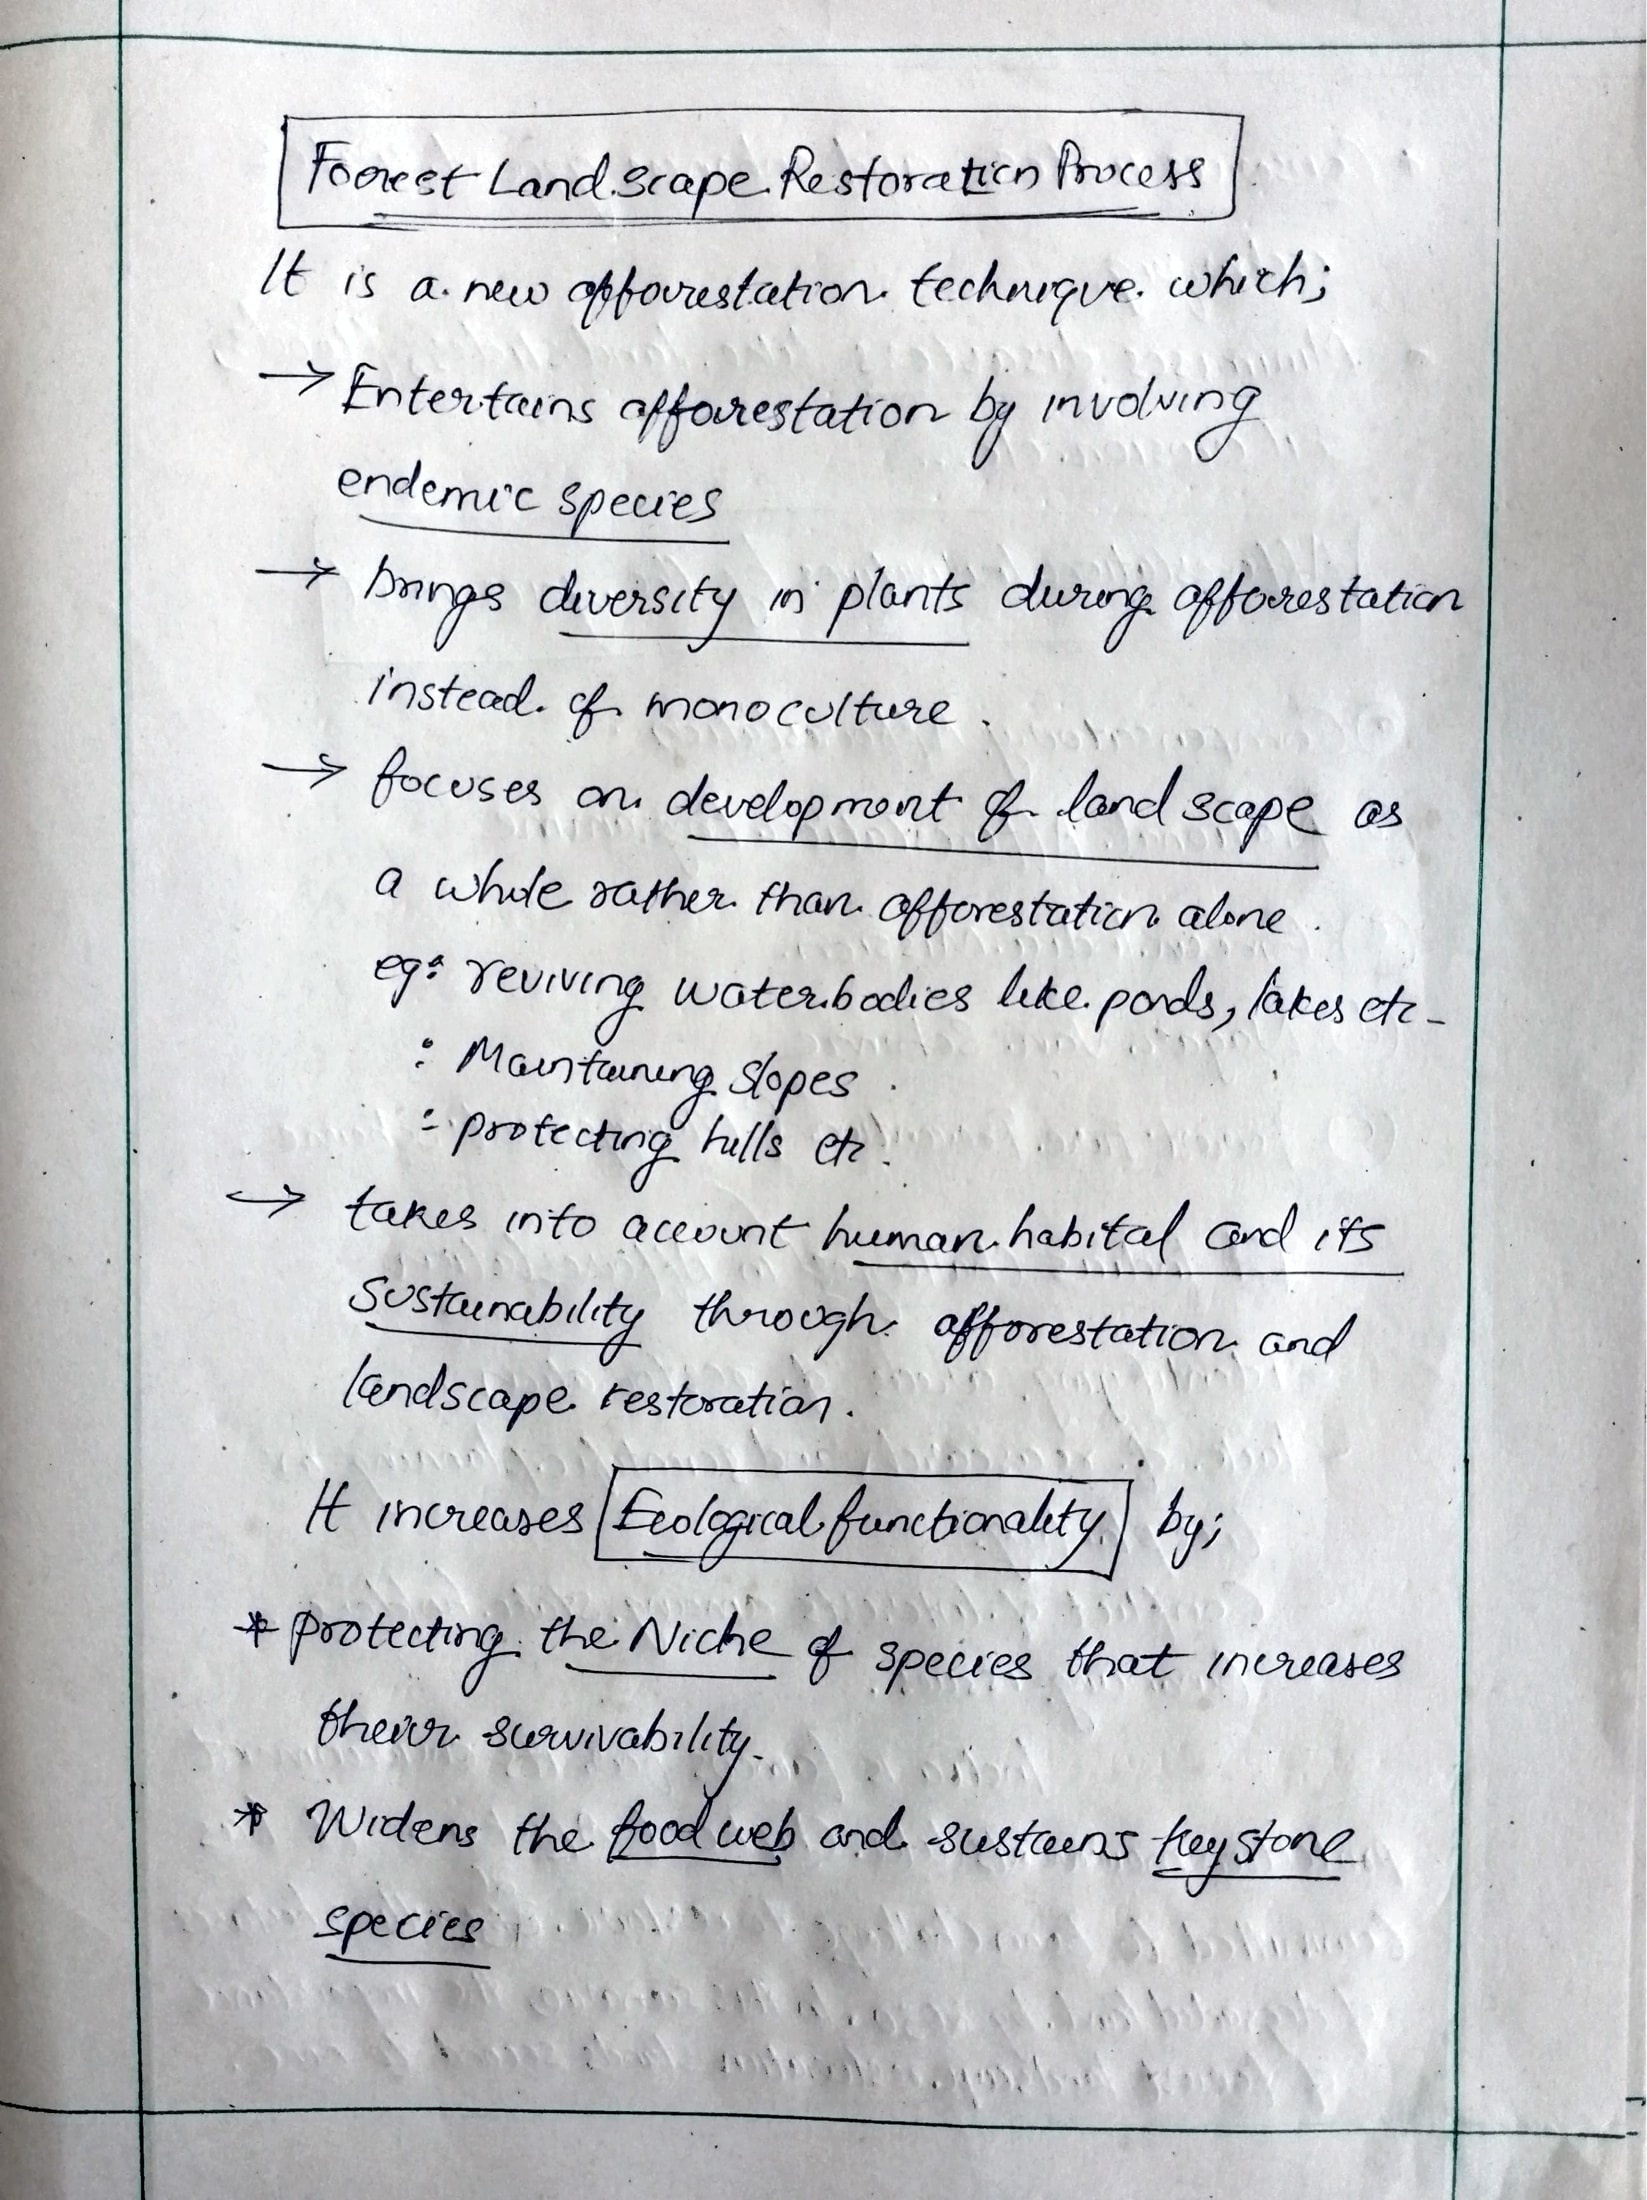 Forest Landscape Restoration Process
It is a new afforestation technique which;
→ Entertains afforestation by involving
endemic species
→ brings diversity in plants during afforestation
instead of monoculture.
→ focuses on development of landscape as
a whole rather than afforestation alone.
eg: reviving waterbodies like ponds, lakes etc.
: Maintaining slopes.
: protecting hills etc.
→ takes into account human habital and its
sustainability through afforestation and
landscape restoration.
It increases Ecological functionality by;
* protecting the Niche of species that increases
their survivability.
* Widens the food web and sustains keystone
species